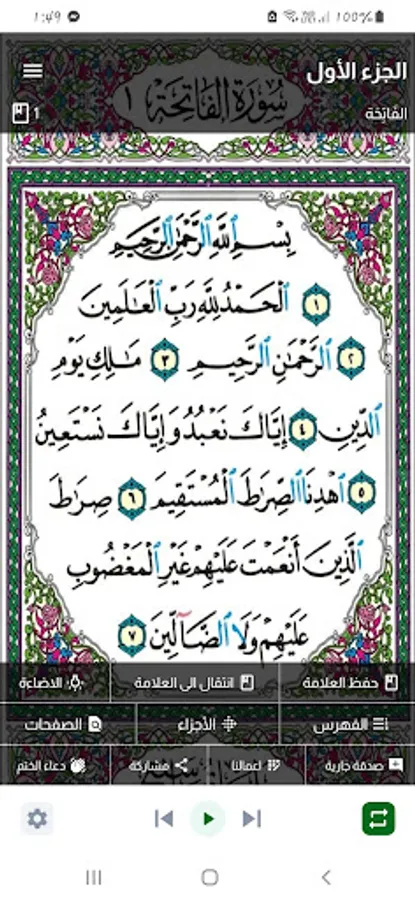 1:49 100%
الجزء الأول
سُورَةُ الفَاتِحَةِ ١
الفَاتِحَة 1
بِسْمِ ٱللَّهِ ٱلرَّحْمَٰنِ ٱلرَّحِيمِ
١ ٱلْحَمْدُ لِلَّهِ رَبِّ ٱلْعَٰلَمِينَ
٢ ٱلرَّحْمَٰنِ ٱلرَّحِيمِ ٣ مَٰلِكِ يَوْمِ
ٱلدِّينِ ٤ إِيَّاكَ نَعْبُدُ وَإِيَّاكَ نَسْتَعِينُ
٥ ٱهْدِنَا ٱلصِّرَٰطَ ٱلْمُسْتَقِيمَ ٦ صِرَٰطَ
ٱلَّذِينَ أَنْعَمْتَ عَلَيْهِمْ غَيْرِ ٱلْمَغْضُوبِ
عَلَيْهِمْ وَلَا ٱلضَّآلِّينَ ٧
حفظ العلامة انتقال الى العلامة الاضاءة
الفهرس الأجزاء الصفحات
صدقة جارية اعمالنا مشاركة دعاء الختم